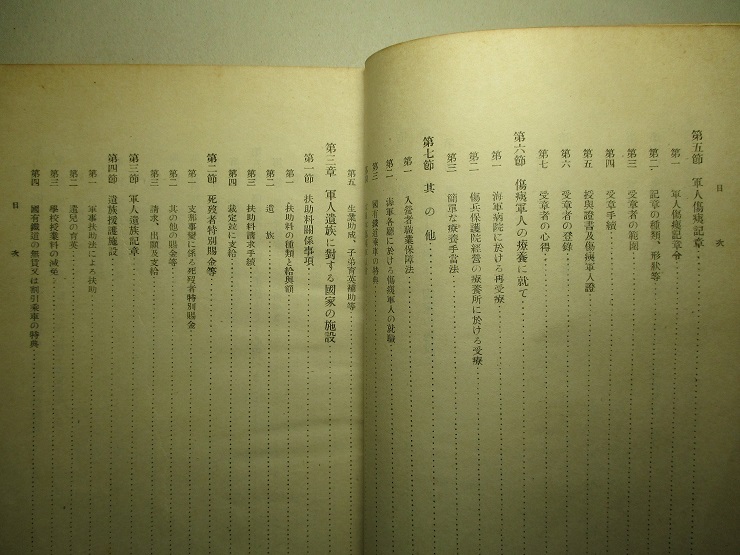 目次
第五節 軍人傷痍記章
第一 軍人傷痍記章令
第二 記章の種類、形狀等
第三 受章者の範圍
第四 受章手續
第五 授與證書及傷痍軍人證
第六 受章者の登錄
第七 受章者の心得
第六節 傷痍軍人の療養に就て
第一 海軍病院に於ける再受療
第二 傷兵保護院經營の療養所に於ける受療
第三 簡單な療養手當法
第七節 其の他
第一 入營者職業保障法
第二 海軍各廳に於ける傷痍軍人の就職
第三 國有鐵道乘車の特典
第五 生業助成、子弟育英補助等
第三章 軍人遺族に對する國家の施設
第一節 扶助料關係事項
第一 扶助料の種類と給與額
第二 遺族
第三 扶助料請求手續
第四 裁定竝に支給
第二節 死歿者特別賜金等
第一 支那事變に係る死歿者特別賜金
第二 其の他の賜金等
第三 請求、出願及支給
第三節 軍人遺族記章
第四節 遺族援護施設
第一 軍事扶助法による扶助
第二 遺兒の育英
第三 學校授業料の減免
第四 國有鐵道の無賃又は割引乘車の特典
目次